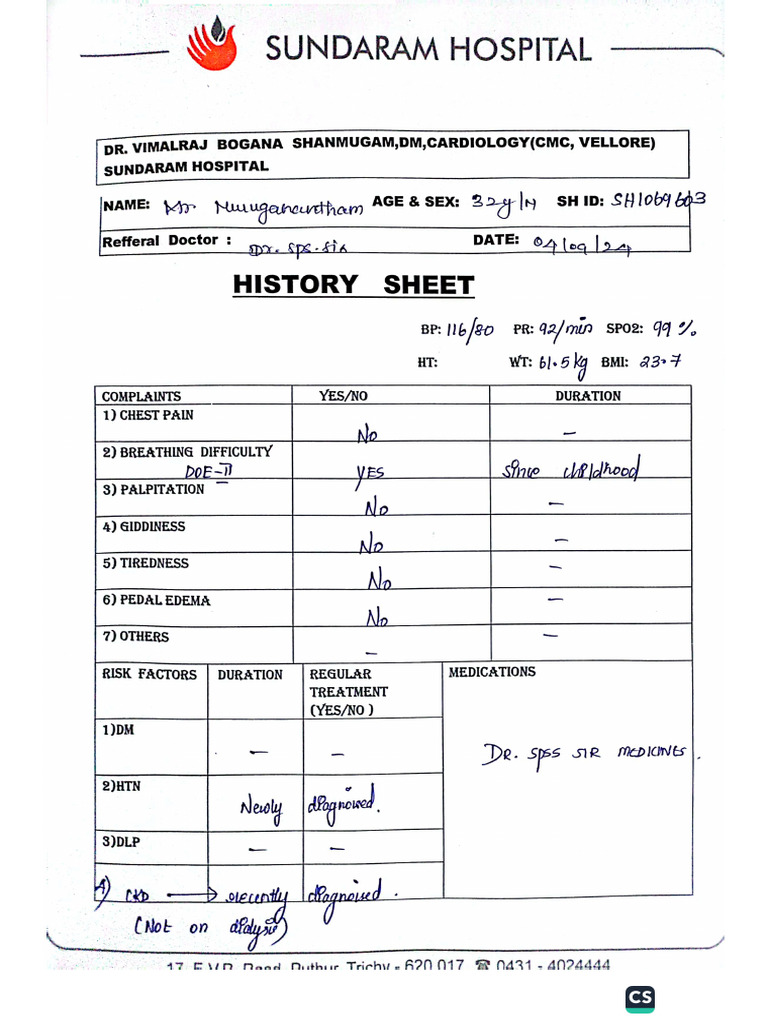 SUNDARAM HOSPITAL
DR. VIMALRAJ BOGANA SHANMUGAM,DM,CARDIOLOGY(CMC, VELLORE)
SUNDARAM HOSPITAL
NAME: Mr Muruganantham AGE & SEX: 32y/M SH ID: SH1069603
Refferal Doctor : Dr. sps. sir DATE: 04/09/24
HISTORY SHEET
BP: 116/80 PR: 92/min SPO2: 99 %
HT: WT: 61.5 kg BMI: 23.7
COMPLAINTS YES/NO DURATION
1) CHEST PAIN No –
2) BREATHING DIFFICULTY
DOE-II YES since childhood
3) PALPITATION No –
4) GIDDINESS No –
5) TIREDNESS No –
6) PEDAL EDEMA No –
7) OTHERS – –
RISK FACTORS DURATION REGULAR TREATMENT (YES/NO ) MEDICATIONS
1)DM – –
DR. SPSS SIR MEDICINES.
2)HTN Newly diagnoised.
3)DLP – –
4) CKD → recently diagnoised.
(Not on dialysis)
17, E.V.R. Road, Puthur, Trichy - 620 017 ☎ 0431 - 4024444
CS